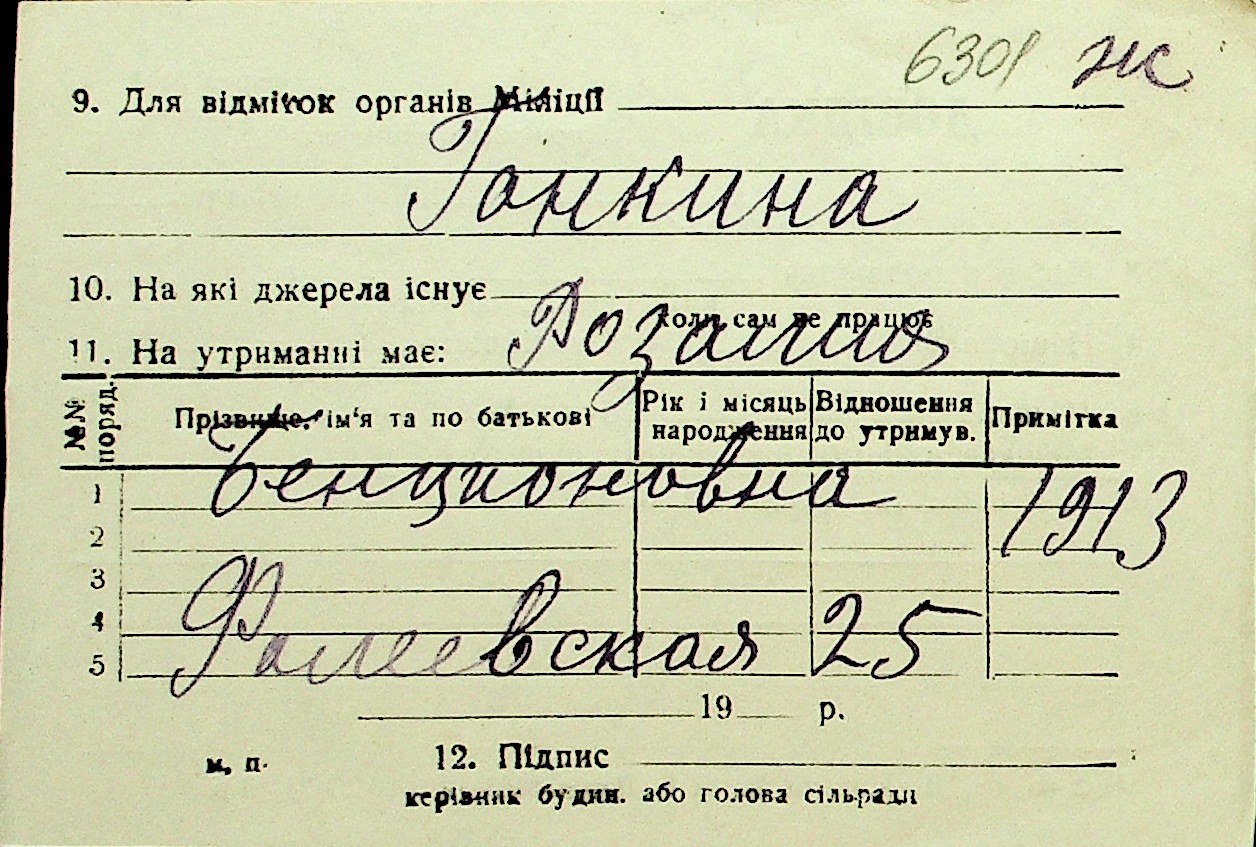 6301 ж
9. Для відміток органів Міліції
Гонкина
10. На які джерела існує
коли сам не працює
11. На утриманні має:
Розалия
№№ поряд. Прізвище, ім'я та по батькові Рік і місяць народження Відношення до утримув. Примітка
1 Бенционовна 1913
2
3
4
5 Фалеевская 25
19 р.
м. п. 12. Підпис
керівник будин. або голова сільради